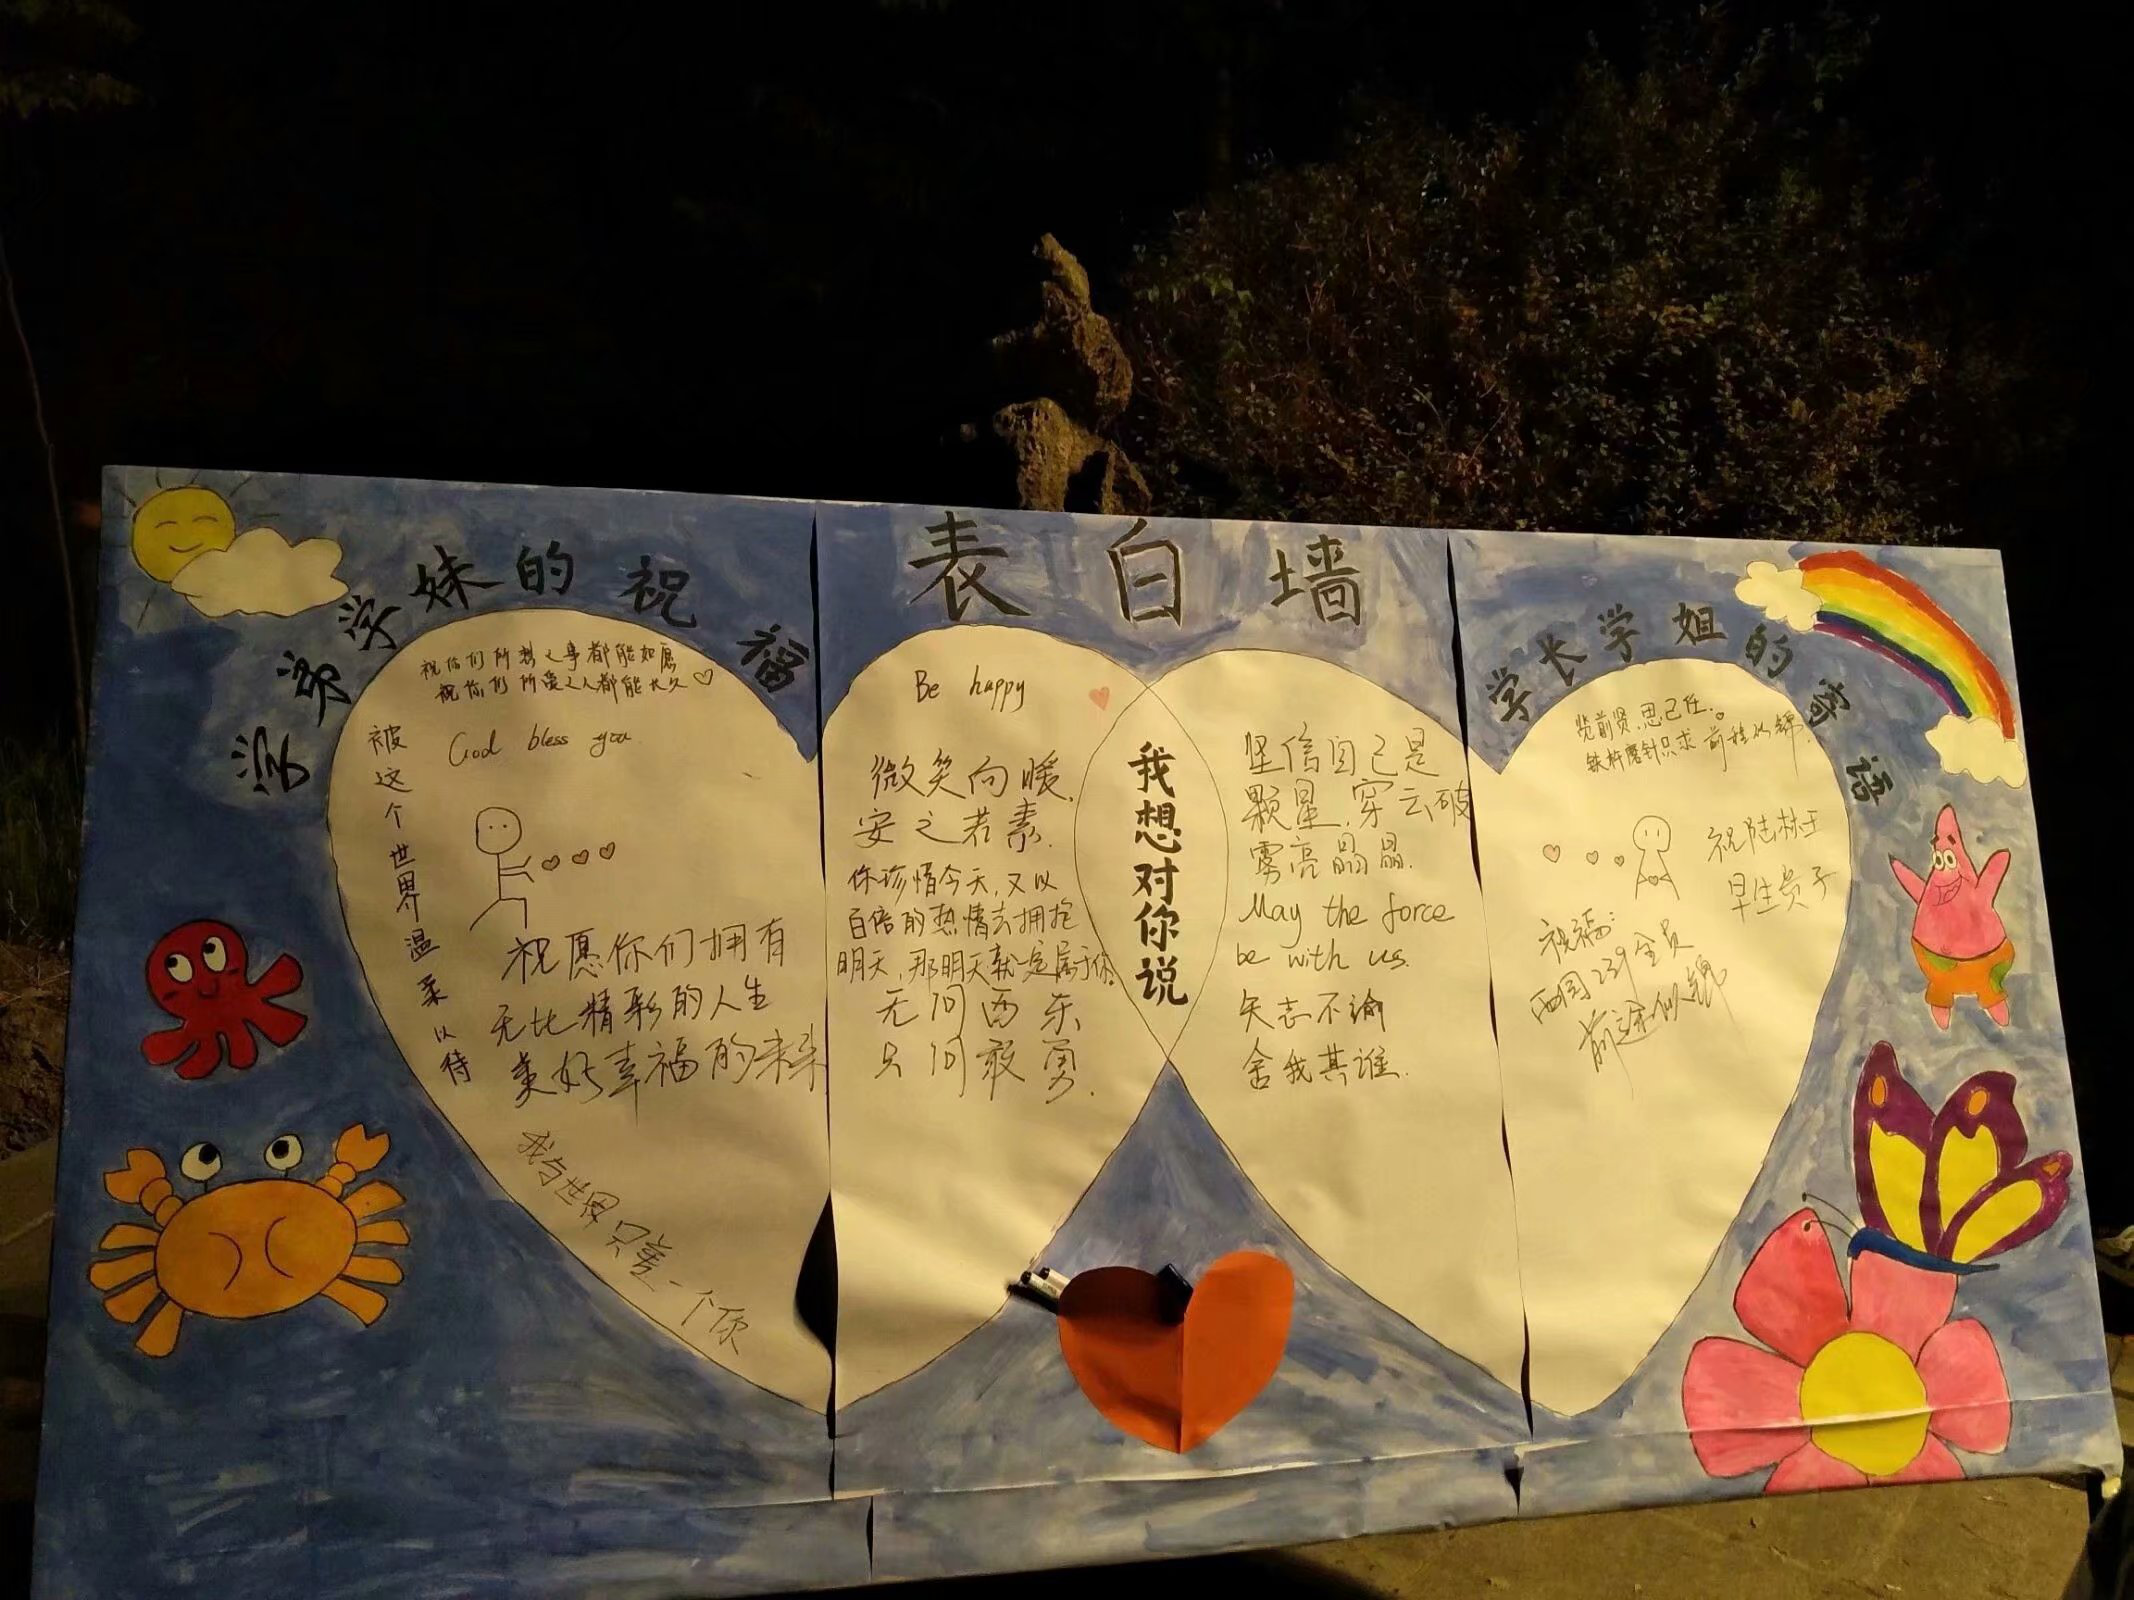 表白墙
学弟学妹的祝福
祝你们所想之事都能如愿
祝你们所爱之人都能长久
God bless you
被这个世界温柔以待
祝愿你们拥有
无比精彩的人生
美好幸福的未来
我与世界只差一个你
Be happy
微笑向暖,
安之若素.
你珍惜今天,又以
百倍的热情去拥抱
明天,那明天就一定属于你.
无问西东
只问敢勇.
我想对你说
坚信自己是
颗星,穿云破
雾亮晶晶.
May the force
be with us.
矢志不渝
舍我其谁.
学长学姐的寄语
览前贤,思己任.
铁杵磨针只求前程似锦.
祝陆林王
早生贵子
祝福:
西园239全员
前途似锦